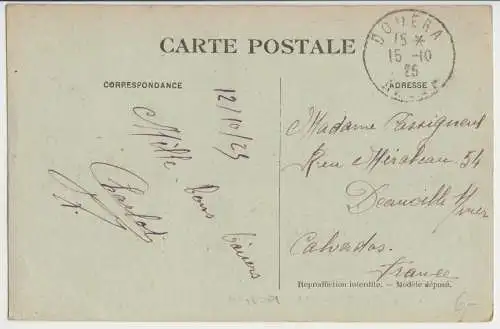 CARTE POSTALE
DOUERA
15 *
15 -10
25
CORRESPONDANCE
ADRESSE
12/10/25
Mille
Bons Baisers
Charlot
Madame Passignent
Rue Mirabeau 54
Deauville s/mer
Calvados.
France
Reproduction interdite. — Modèle déposé.